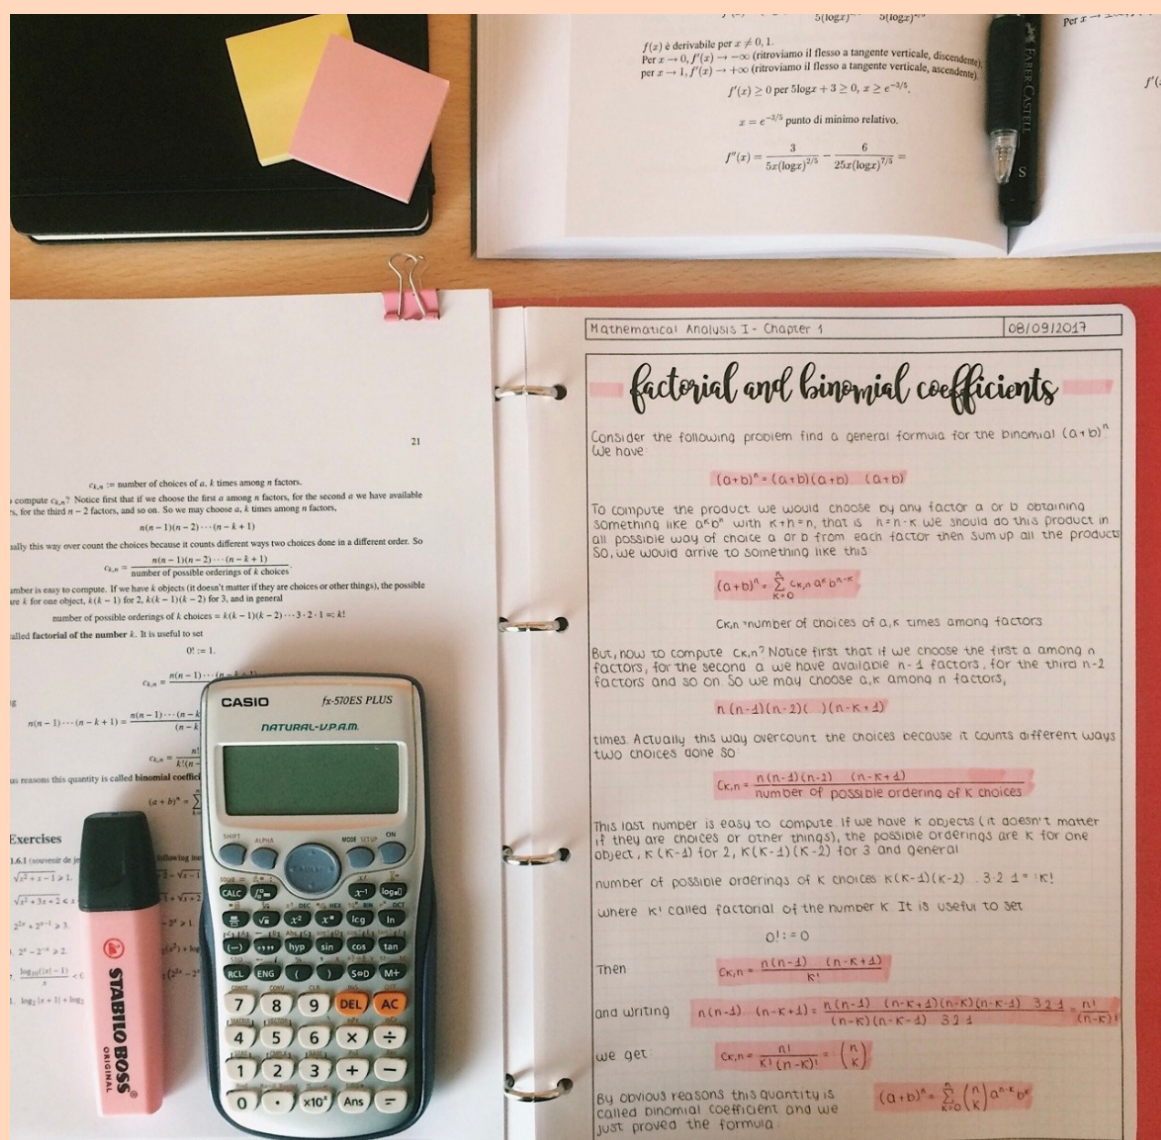 5(logx)
5(logx)
f(x) è derivabile per x ≠ 0, 1.
Per x → 0, f'(x) → −∞ (ritroviamo il flesso a tangente verticale, discendente);
per x → 1, f'(x) → +∞ (ritroviamo il flesso a tangente verticale, ascendente).
f'(x) ≥ 0 per 5logx + 3 ≥ 0, x ≥ e^{−3/5}.
x = e^{−3/5} punto di minimo relativo.
f''(x) = 3/(5x(logx)^{2/5}) − 6/(25x(logx)^{7/5}) =
Per x →
FABER CASTELL
S
21
c_{k,n} := number of choices of a, k times among n factors.
compute c_{k,n}? Notice first that if we choose the first a among n factors, for the second a we have available
s, for the third n − 2 factors, and so on. So we may choose a, k times among n factors,
n(n − 1)(n − 2) ··· (n − k + 1)
ally this way over count the choices because it counts different ways two choices done in a different order. So
c_{k,n} = n(n − 1)(n − 2) ··· (n − k + 1)/number of possible orderings of k choices.
umber is easy to compute. If we have k objects (it doesn't matter if they are choices or other things), the possible
are k for one object, k(k − 1) for 2, k(k − 1)(k − 2) for 3, and in general
number of possible orderings of k choices = k(k − 1)(k − 2) ··· 3 · 2 · 1 =: k!
alled factorial of the number k. It is useful to set
0! := 1.
c_{k,n} = n(n − 1) ···
n(n − 1) ··· (n − k + 1) = n(n − 1) ··· (n − k
(n − k
c_{k,n} = n!
k!(n −
us reasons this quantity is called binomial coeffici
(a + b)^n = ∑
Exercises
1.6.1 (souvenir de je
following ine
√(x² + x − 1) ≥ 1.
√(x² + 3x + 2) <
2^{2x} + 2^{x−1} ≥ 3.
2^x − 2^{−x} ≥ 2.
CASIO
fx-570ES PLUS
NATURAL-V.P.A.M.
SHIFT ALPHA MODE SETUP ON
CALC x⁻¹ log
√ x² x^■ log ln
(−) hyp sin cos tan
RCL ENG ( ) S⇔D M+
7 8 9 DEL AC
4 5 6 × ÷
1 2 3 + −
0 · ×10^x Ans =
STABILO BOSS
ORIGINAL
Mathematical Analysis I - Chapter 1
08/09/2017
factorial and binomial coefficients
Consider the following problem find a general formula for the binomial (a+b)^n
We have:
(a+b)^n = (a+b)(a+b) (a+b)
To compute the product we would choose by any factor a or b obtaining
something like a^k b^h with k+h=n, that is h=n-k We should do this product in
all possible way of choice a or b from each factor then sum up all the product
So, we would arrive to something like this
(a+b)^n = ∑_{k=0}^{n} c_{k,n} a^k b^{n-k}
C_{k,n} = number of choices of a, k times among factors
But, how to compute C_{k,n}? Notice first that if we choose the first a among n
factors, for the second a we have available n-1 factors, for the third n-2
factors and so on. So we may choose a,k among n factors,
n(n-1)(n-2)( )(n-k+1)
times. Actually this way overcount the choices because it counts different ways
two choices done So:
C_{k,n} = n(n-1)(n-2) (n-k+1)/number of possible ordering of k choices
This last number is easy to compute. If we have k objects (it doesn't matter
if they are choices or other things), the possible orderings are k for one
object, k(k-1) for 2, k(k-1)(k-2) for 3 and general
number of possible orderings of k choices k(k-1)(k-2) 3 2 1 =: k!
where k! called factorial of the number k It is useful to set
0! := 0
Then C_{k,n} = n(n-1) (n-k+1)/k!
and writing n(n-1) (n-k+1) = n(n-1) (n-k+1)(n-k)(n-k-1) 3 2 1/(n-k)(n-k-1) 3 2 1 = n!/(n-k)!
we get: C_{k,n} = n!/k!(n-k)! =: (n k)
By obvious reasons this quantity is
called binomial coefficient and we
just proved the formula:
(a+b)^n = ∑_{k=0}^{n} (n k) a^{n-k} b^k